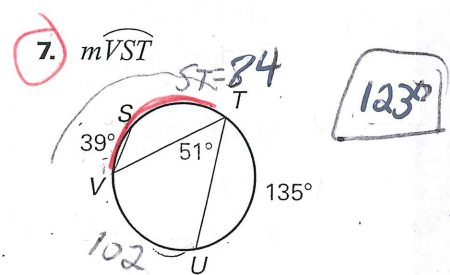 7. mVST
ST=84
T
123°
S
39°
51°
V
135°
102
U